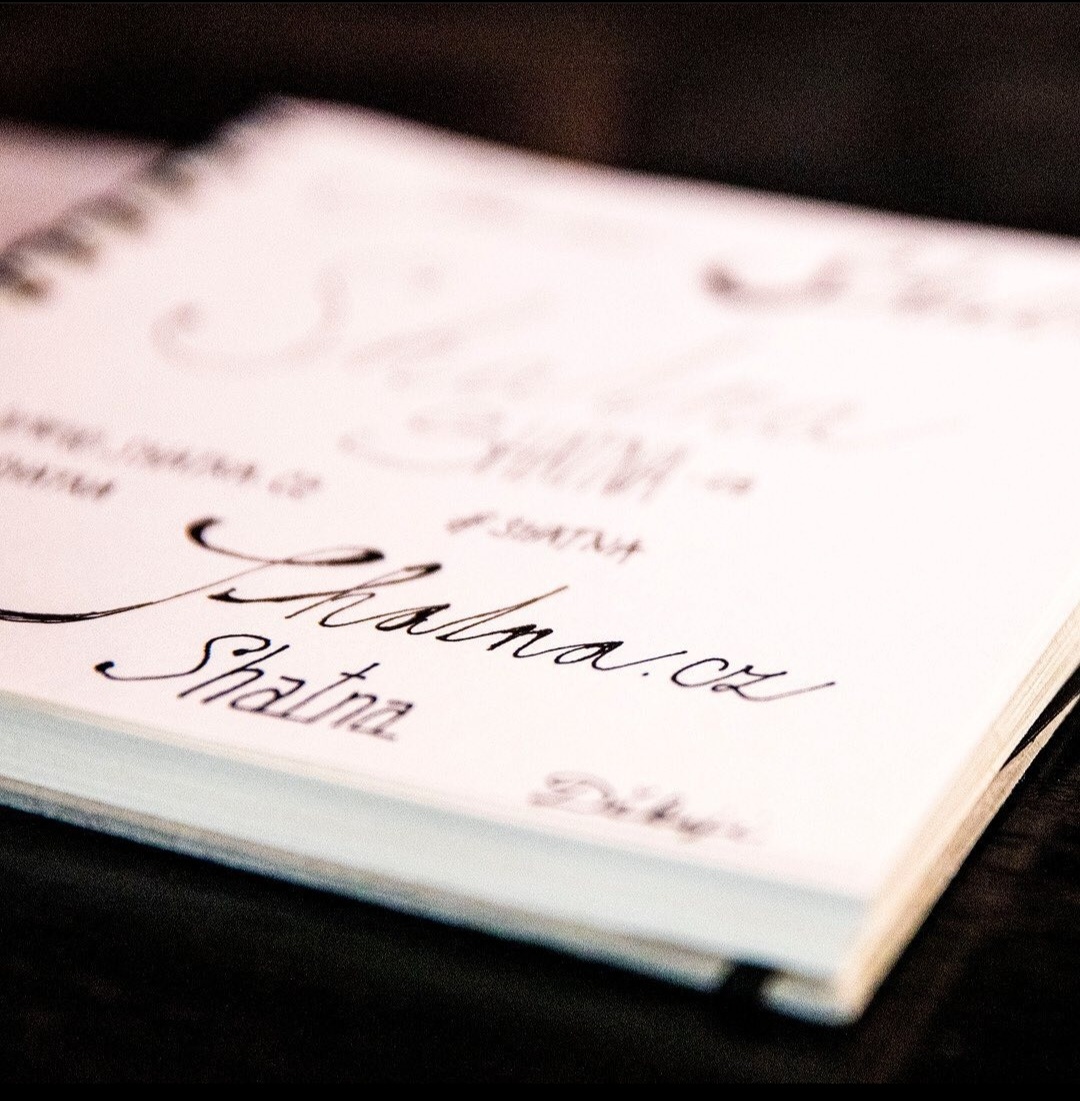 Shatna
SHATNA
WWW.SHATNA.CZ
# SHATNA
SHATNA
Shatna.cz
Shatna
Děkuji